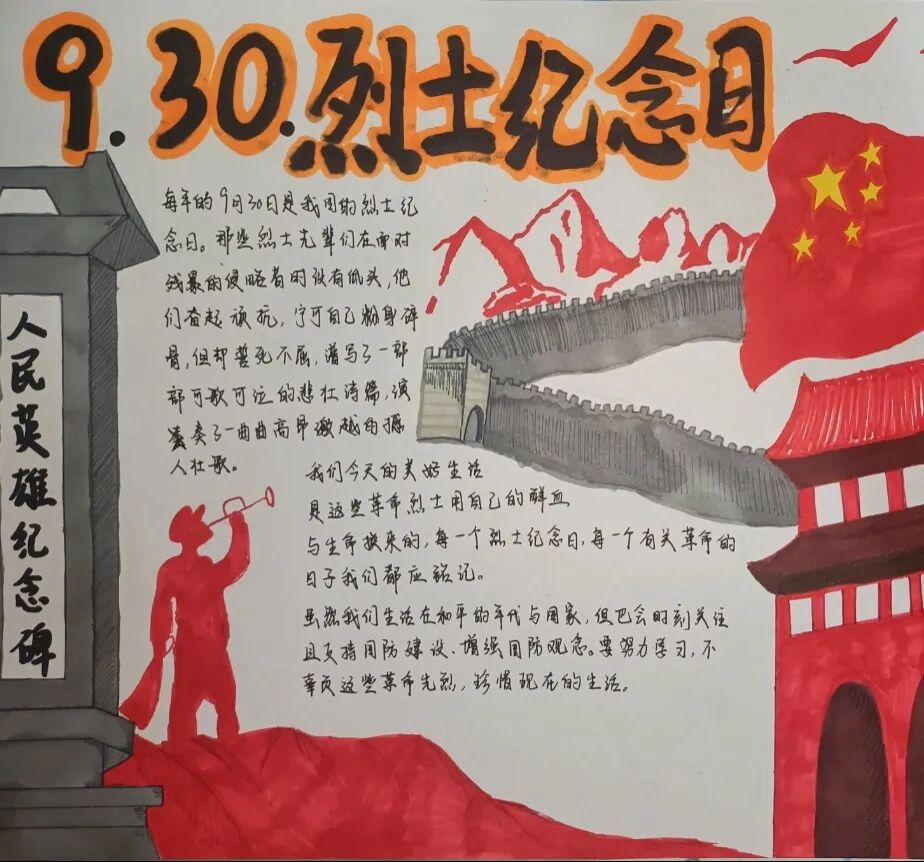 9.30.烈士纪念日
人民英雄纪念碑
每年的9月30日是我国的烈士纪
念日。那些烈士先辈们在面对
残暴的侵略者时没有低头,他
们奋起顽抗,宁可自己粉身碎
骨,但却誓死不屈,谱写了一部
部可歌可泣的悲壮诗篇,演
奏了一曲曲高昂激越的撼
人壮歌。
我们今天的美好生活
是这些革命烈士用自己的鲜血
与生命换来的,每一个烈士纪念日,每一个有关革命的
日子我们都应铭记。
虽然我们生活在和平的年代与国家,但也会时刻关注
且支持国防建设、增强国防观念。要努力学习,不
辜负这些革命先烈,珍惜现在的生活。